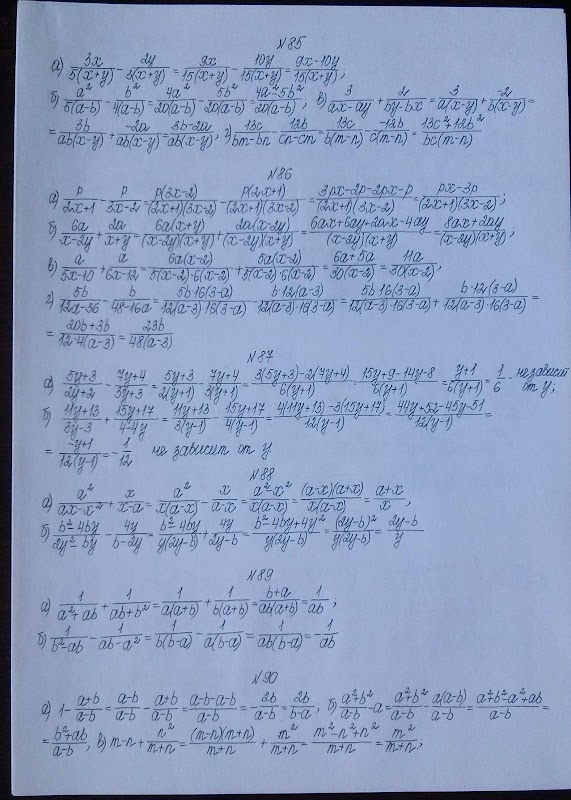 №85
а) 3x/5(x+y) - 2y/3(x+y) = 9x/15(x+y) - 10y/15(x+y) = 9x-10y/15(x+y);
б) a²/5(a-b) - b²/4(a-b) = 4a²/20(a-b) - 5b²/20(a-b) = 4a²-5b²/20(a-b); в) 3/ax-ay + 2/by-bx = 3/a(x-y) + -2/b(x-y) =
= 3b/ab(x-y) + -2a/ab(x-y) = 3b-2a/ab(x-y); г) 13c/bm-bn - 12b/cn-cm = 13c/b(m-n) - -12b/c(m-n) = 13c²+12b²/bc(m-n)
№86
а) p/2x+1 - p/3x-2 = p(3x-2)/(2x+1)(3x-2) - p(2x+1)/(2x+1)(3x-2) = 3px-2p-2px-p/(2x+1)(3x-2) = px-3p/(2x+1)(3x-2);
б) 6a/x-2y + 2a/x+y = 6a(x+y)/(x-2y)(x+y) + 2a(x-2y)/(x-2y)(x+y) = 6ax+6ay+2ax-4ay/(x-2y)(x+y) = 8ax+2ay/(x-2y)(x+y);
в) a/5x-10 + a/6x-12 = 6a(x-2)/5(x-2)·6(x-2) + 5a(x-2)/5(x-2)·6(x-2) = 6a+5a/30(x-2) = 11a/30(x-2);
г) 5b/12a-36 - b/48-16a = 5b·16(3-a)/12(a-3)·16(3-a) - b·12(a-3)/12(a-3)·16(3-a) = 5b·16(3-a)/12(a-3)·16(3-a) + b·12(3-a)/12(a-3)·16(3-a) =
= 20b+3b/12·4(a-3) = 23b/48(a-3)
№87
а) 5y+3/2y+2 - 7y+4/3y+3 = 5y+3/2(y+1) - 7y+4/3(y+1) = 3(5y+3)-2(7y+4)/6(y+1) = 15y+9-14y-8/6(y+1) = y+1/6(y+1) = 1/6 - не зависит от y;
б) 11y+13/3y-3 + 15y+17/4-4y = 11y+13/3(y-1) - 15y+17/4(y-1) = 4(11y+13)-3(15y+17)/12(y-1) = 44y+52-45y-51/12(y-1) =
= -y+1/12(y-1) = -1/12 не зависит от y
№88
а) a²/ax-x² + x/x-a = a²/x(a-x) - x/a-x = a²-x²/x(a-x) = (a-x)(a+x)/x(a-x) = a+x/x;
б) b²-4by/2y²-by - 4y/b-2y = b²-4by/y(2y-b) + 4y/2y-b = b²-4by+4y²/y(2y-b) = (2y-b)²/y(2y-b) = 2y-b/y
№89
а) 1/a²+ab + 1/ab+b² = 1/a(a+b) + 1/b(a+b) = b+a/ab(a+b) = 1/ab;
б) 1/b²-ab - 1/ab-a² = 1/b(b-a) - 1/a(b-a) = 1/ab(b-a) = -1/ab
№90
а) 1- a+b/a-b = a-b/a-b - a+b/a-b = a-b-a-b/a-b = -2b/a-b = 2b/b-a; б) a²+b²/a-b - a = a²+b²/a-b - a(a-b)/a-b = a²+b²-a²+ab/a-b =
= b²+ab/a-b; в) m-n+ n²/m+n = (m-n)(m+n)/m+n + n²/m+n = m²-n²+n²/m+n = m²/m+n;